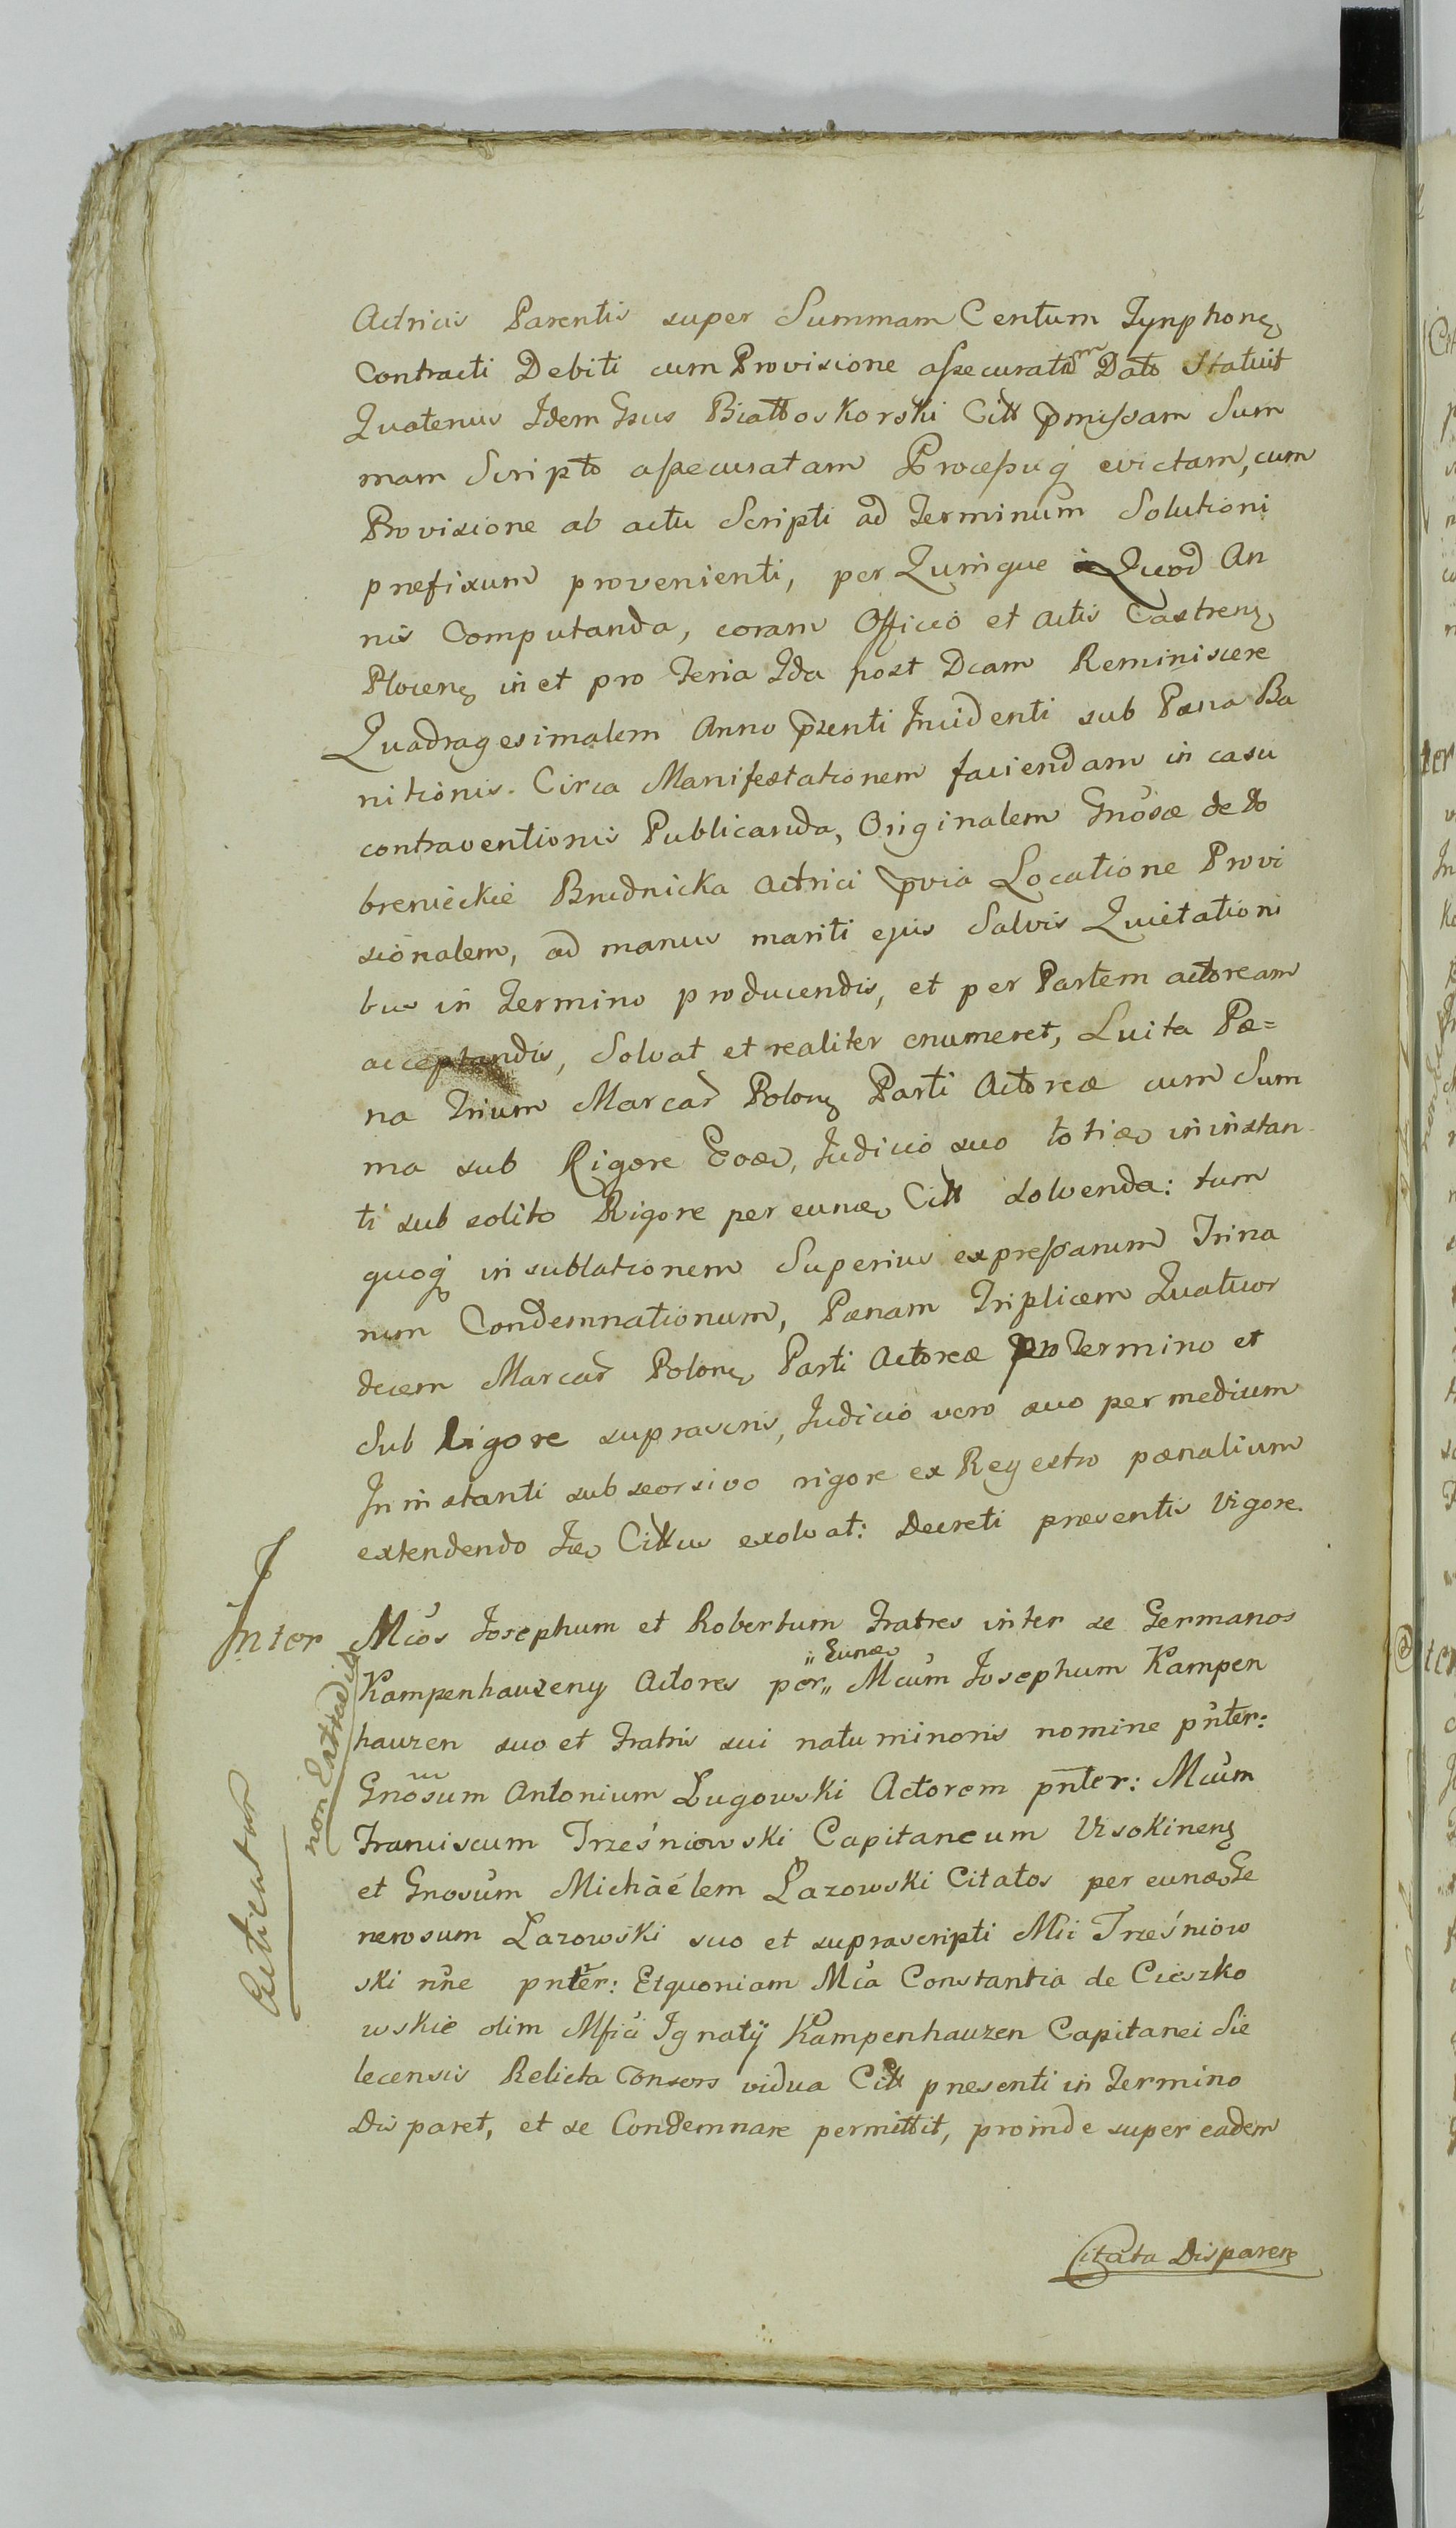 Actricis Parentis super Summam Centum Tynphonz
Contracti Debiti cum Provisione assecuratam Dato Statuit
Quatenus Idem Gsus Białłoskorski Citt pmissam Sum
mam Scripto assecuratam Processuq evictam, cum
Provisione ab actu Scripti ad Terminum Solutioni
prefixum provenienti, per Quinque Quod An
nis Computanda, coram Officio et actis Castrenz
Plocenz in et pro Feria IIda post Dcam Reminiscere
Quadragesimalem Anno przenti Incidenti sub Pæna Ba
nitionis. Circa Manifestationem faciendam in casu
contraventionis Publicanda, Originalem Gnosæ de Do
brenieckie Brudnicka Actrici pvia Locatione Provi
sionalem, ad manus mariti ejus Salvis Quietationi
bus in Termino producendis, et per Partem actoream
acceptandis, Solvat et realiter enumeret, Luita Pæ=
na Trium Marcar Polonz Parti Actoreæ cum Sum
ma sub Rigore Eoæ, Judicio suo totiæ in instan
ti sub solito Rigore per eunæ Citt solvenda: tum
quoq in sublationem Superius expressarum Trina
rum Condemnationum, Pænam Triplicem Quatuor
decem Marcar Polonz Parti Actoreæ pro Termino et
Sub Rigore suprascris, Judicio vero suo per medium
In instanti sub seorsivo rigore ex Regestro pænalium
extendendo Iæ Cittus exolvat: Decreti præsentis Vigore.
Inter Mcos Josephum et Robertum Fratres inter se Germanos
„Eunæ
Kampenhauzeny Actores per„ Mcum Josephum Kampen
hauzen suo et Fratris sui natu minoris nomine pnter:
Gnosum Antonium Ługowski Actorem pnter: Mcum
Franciscum Trześniowski Capitaneum Visokinenz
et Gnosum Michàélem Łazowski Citatos per eunæ Ge
nerosum Lazowski suo et suprascripti Mci Trześniow
ski nne pnter: Etquoniam Mca Constantia de Cieszko
wskie olim Mfici Ignatÿ Kampenhauzen Capitanei Sie
lecensis Relicta Consors vidua Citt presenti in Termino
Disparet, et se Condemnare permittit, proinde super eadem
Citata Disparen
non Extradit